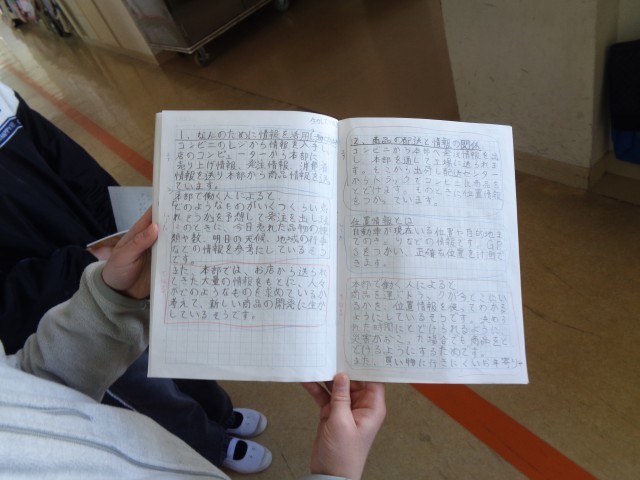 1、なんのために情報を活用
コンビニのレジから情報を入手し
店のコンピューターから本部に
売り上げ情報、発注情報、消費者
情報を送り本部から商品情報を送っ
ています。
本部で働く人によると、
どのようなものがいくつくらい売
れそうかを予想して発注を出します。
そのときに、今日売れた品物の種
類や数、明日の天候、地域の行事
などの情報を参考にしているそう
です。
また、本部では、お店から送られ
てきた大量の情報をもとに、人々
がどのようなものを求めているか
考えて、新しい商品の開発に生か
しているそうです。
2、商品の配送と情報の関係
コンビニから本部に発注情報を出
し、本部を通して工場に送られま
す。工場から出荷し配送センター
からトラックでコンビニに商品を
とどけます。そのときに位置情報
をつかっています。
位置情報とは
自動車が現在いる位置や目的地ま
での
などの情報です。GP
Sをつかい、正確な位置を
きます。
本部で働く人によると
商品を運ぶトラックがどこにい
るかを、位置情報を使ってわかる
ようにしているそうです。決めら
れた時間にとどけられるように、
災害がおこった場合でも商品をと
どけるようにするためです。
また、買い物に行きにくいお年寄りや